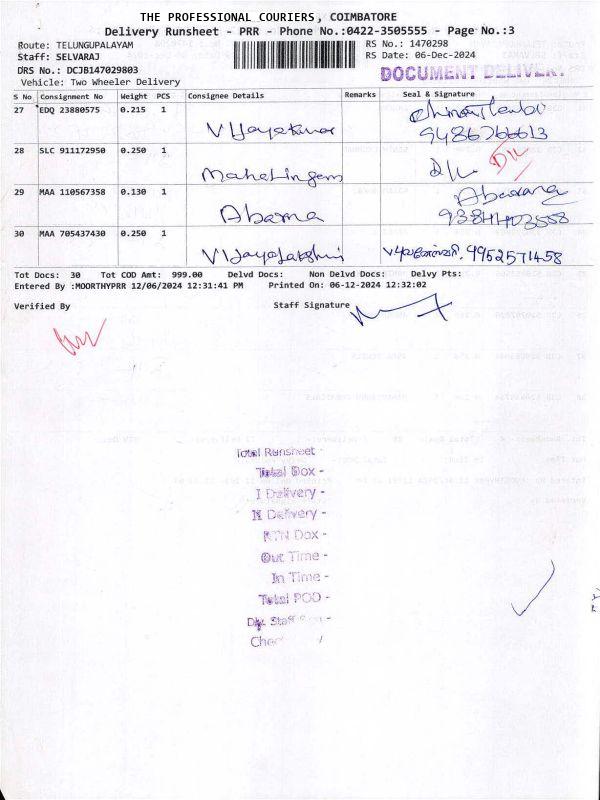 THE PROFESSIONAL COURIERS, COIMBATORE
Delivery Runsheet - PRR - Phone No.:0422-3505555 - Page No.:3
Route: TELUNGUPALAYAM RS No.: 1470298
Staff: SELVARAJ RS Date: 06-Dec-2024
DRS No.: DCJB147029803
Vehicle: Two Wheeler Delivery
DOCUMENT DELIVERY
S No Consignment No Weight PCS Consignee Details Remarks Seal & Signature
27 EDQ 23880575 0.215 1 Vijayakumar 9486266613
28 SLC 911172950 0.250 1 Mahalingam
29 MAA 110567358 0.130 1 Abarna
30 MAA 705437430 0.250 1 Vijayalakshmi 9952571458
Tot Docs: 30 Tot COD Amt: 999.00 Delvd Docs: Non Delvd Docs: Delvy Pts:
Entered By :MOORTHYPRR 12/06/2024 12:31:41 PM Printed On: 06-12-2024 12:32:02
Verified By Staff Signature
Total Runsheet -
Total Dox -
I Delivery -
II Delivery -
RTN Dox -
Out Time -
In Time -
Total POD -